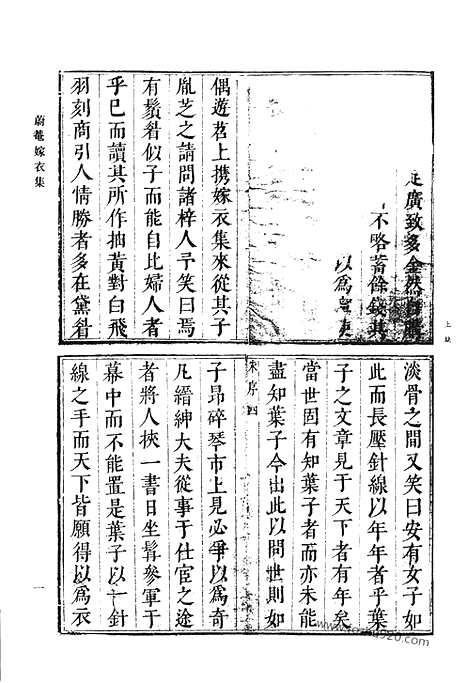 蔚菴嫁衣集
上缺
廣致多金然
不略蓄餘錢其
以爲
偶遊苕上携嫁衣集來從其子
胤芝之請問諸梓人予笑曰焉
有鬚眉似子而能自比婦人者
乎已而讀其所作抽黃對白飛
羽刻商引人情勝者多在黛眉
淡骨之間又笑曰安有女子如
此而長壓針線以年年者乎葉
子之文章見于天下者有年矣
當世固有知葉子者而亦未能
盡知葉子今出此以問世則如
朱序四
子昂碎琴市上見必爭以爲奇
凡縉紳大夫從事于仕宦之途
者將人挾一書日坐髯參軍于
幕中而不能置是葉子以一針
線之手而天下皆願得以爲衣
一